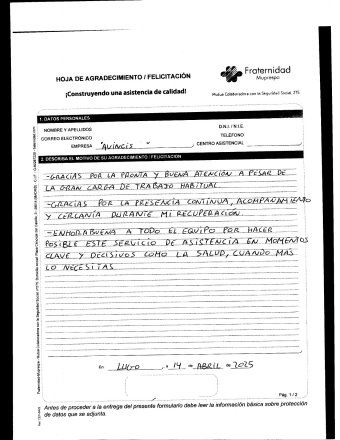 HOJA DE AGRADECIMIENTO / FELICITACIÓN
¡Construyendo una asistencia de calidad!
Fraternidad
Muprespa
Mutua Colaboradora con la Seguridad Social, 275
1. DATOS PERSONALES
NOMBRE Y APELLIDOS
D.N.I. / N.I.E.
CORREO ELECTRÓNICO
TELÉFONO
EMPRESA "AVINCIS"
CENTRO ASISTENCIAL
2. DESCRIBA EL MOTIVO DE SU AGRADECIMIENTO / FELICITACIÓN
-GRACIAS POR LA PRONTA Y BUENA ATENCIÓN A PESAR DE
LA GRAN CARGA DE TRABAJO HABITUAL.
-GRACIAS POR LA PRESENCIA CONTINUA, ACOMPAÑAMIENTO
Y CERCANÍA DURANTE MI RECUPERACIÓN.
-ENHORABUENA A TODO EL EQUIPO POR HACER
POSIBLE ESTE SERVICIO DE ASISTENCIA EN MOMENTOS
CLAVE Y DECISIVOS COMO LA SALUD, CUANDO MÁS
LO NECESITAS.
En LUGO, 14 de ABRIL de 2025
Pág. 1 / 2
Antes de proceder a la entrega del presente formulario debe leer la información básica sobre protección
de datos que se adjunta.